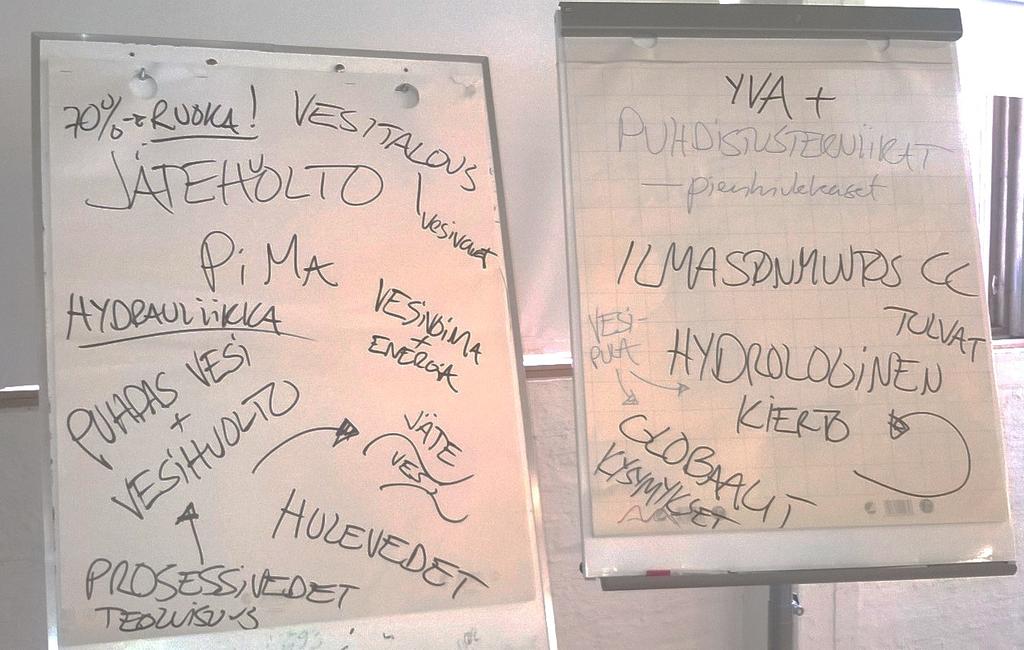 70% → RUOKA!
VESITALOUS
JÄTEHUOLTO
vesivarat
PiMA
HYDRAULiiKKA
VESIVOIMA
+
ENERGIA
PUHDAS VESI
+
VESIHUOLTO
JÄTE
VESI
HULEVEDET
PROSESSiVEDET
TEOLLISUUS
YVA +
PUHDISTUSTEKNIIKAT
— pienhiukkaset
ILMASTONMUUTOS CC
TULVAT
VESI-
PULA
HYDROLOGiNEN
KiERTO
GLOBAALIT
KYSYMYKSET